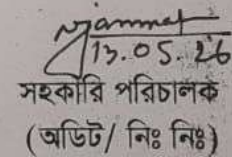 13.05.26
সহকারি পরিচালক
(অডিট/ নিঃ নিঃ)